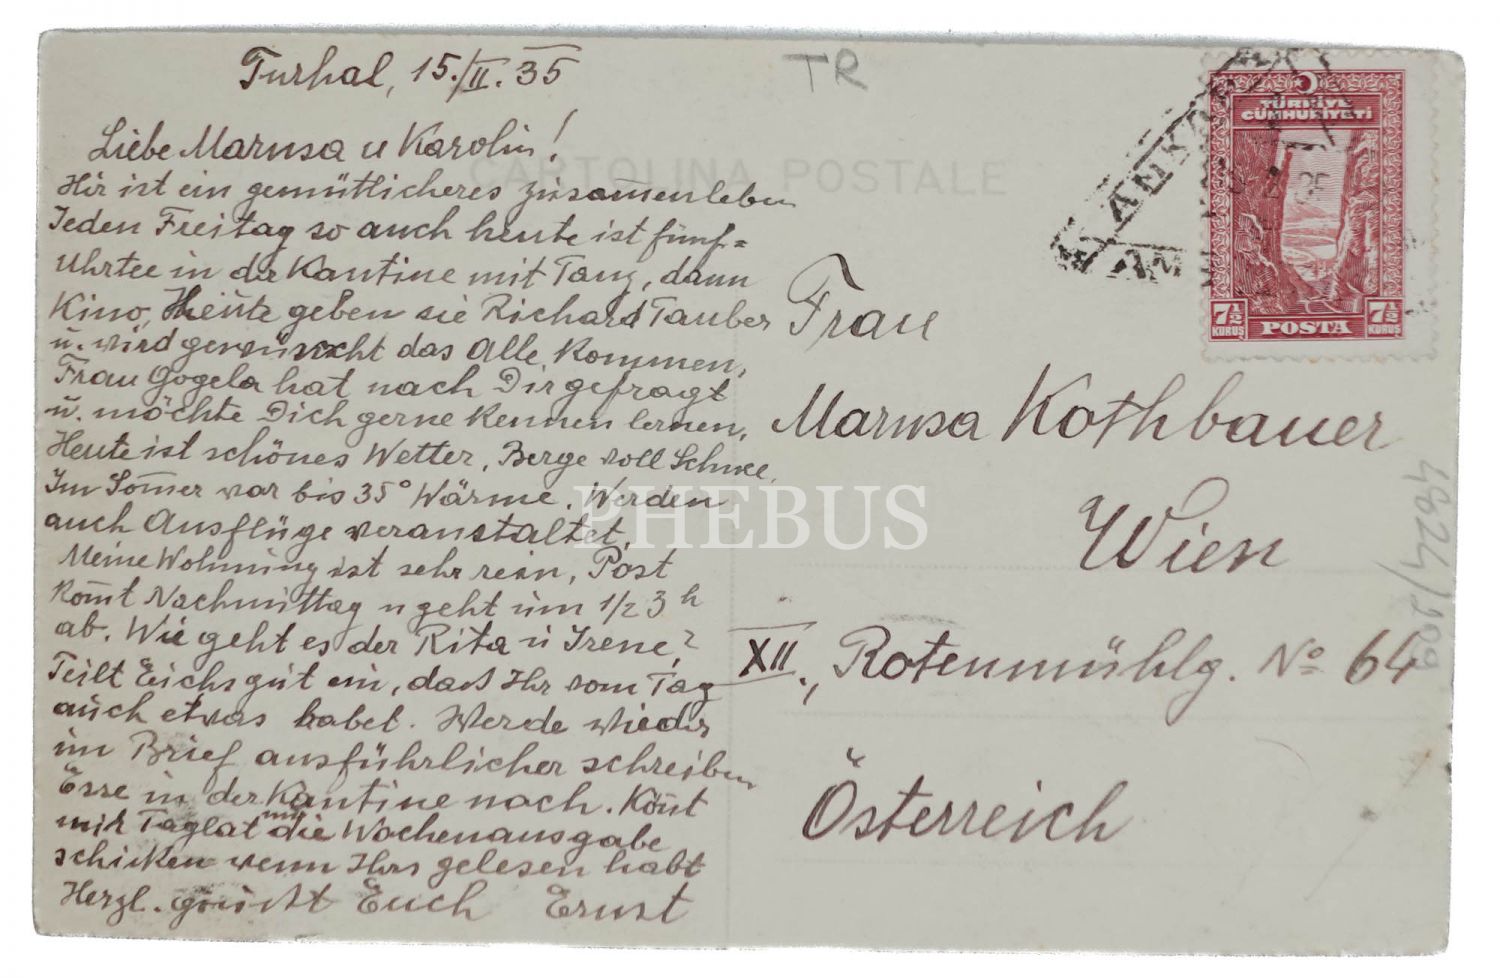 Turhal, 15./II. 35
TR
Liebe Marusa u Karolin!
Hir ist ein gemütlicheres zusam̄enleben
Jeden Freitag so auch heute ist fünf=
uhrtee in der Kantine mit Tanz, dann
Kino, Heute geben sie Richard Tauber
u. wird gewünscht das Alle kommen,
Frau Gogela hat nach Dir gefragt
u. möchte Dich gerne kennen lernen,
Heute ist schönes Wetter, Berge voll Schnee,
Im Som̄er war bis 35° Wärme. Werden
auch Ausflüge veranstaltet.
Meine Wohnung ist sehr rein, Post
kom̄t Nachmittag u geht um 1/2 3 h
ab. Wie geht es der Rita u Irene?
Teilt Eichs gut ein, daß Ihr vom Tag
auch etwas habet. Werde wieder
im Brief ausführlicher schreiben
Esse in der Kantine nach. Kön̄t
mir Taglat die Wochenausgabe
schicken wenn Ihrs gelesen habt
Herzl. grüsst Euch Ernst
CARTOLINA POSTALE
ANKARA
TÜRKİYE
CÜMHURİYETİ
7½ KURUŞ POSTA 7½ KURUŞ
Frau
Marusa Kothbauer
Wien
XII., Rotenmühlg. No 64
Österreich
PHEBUS